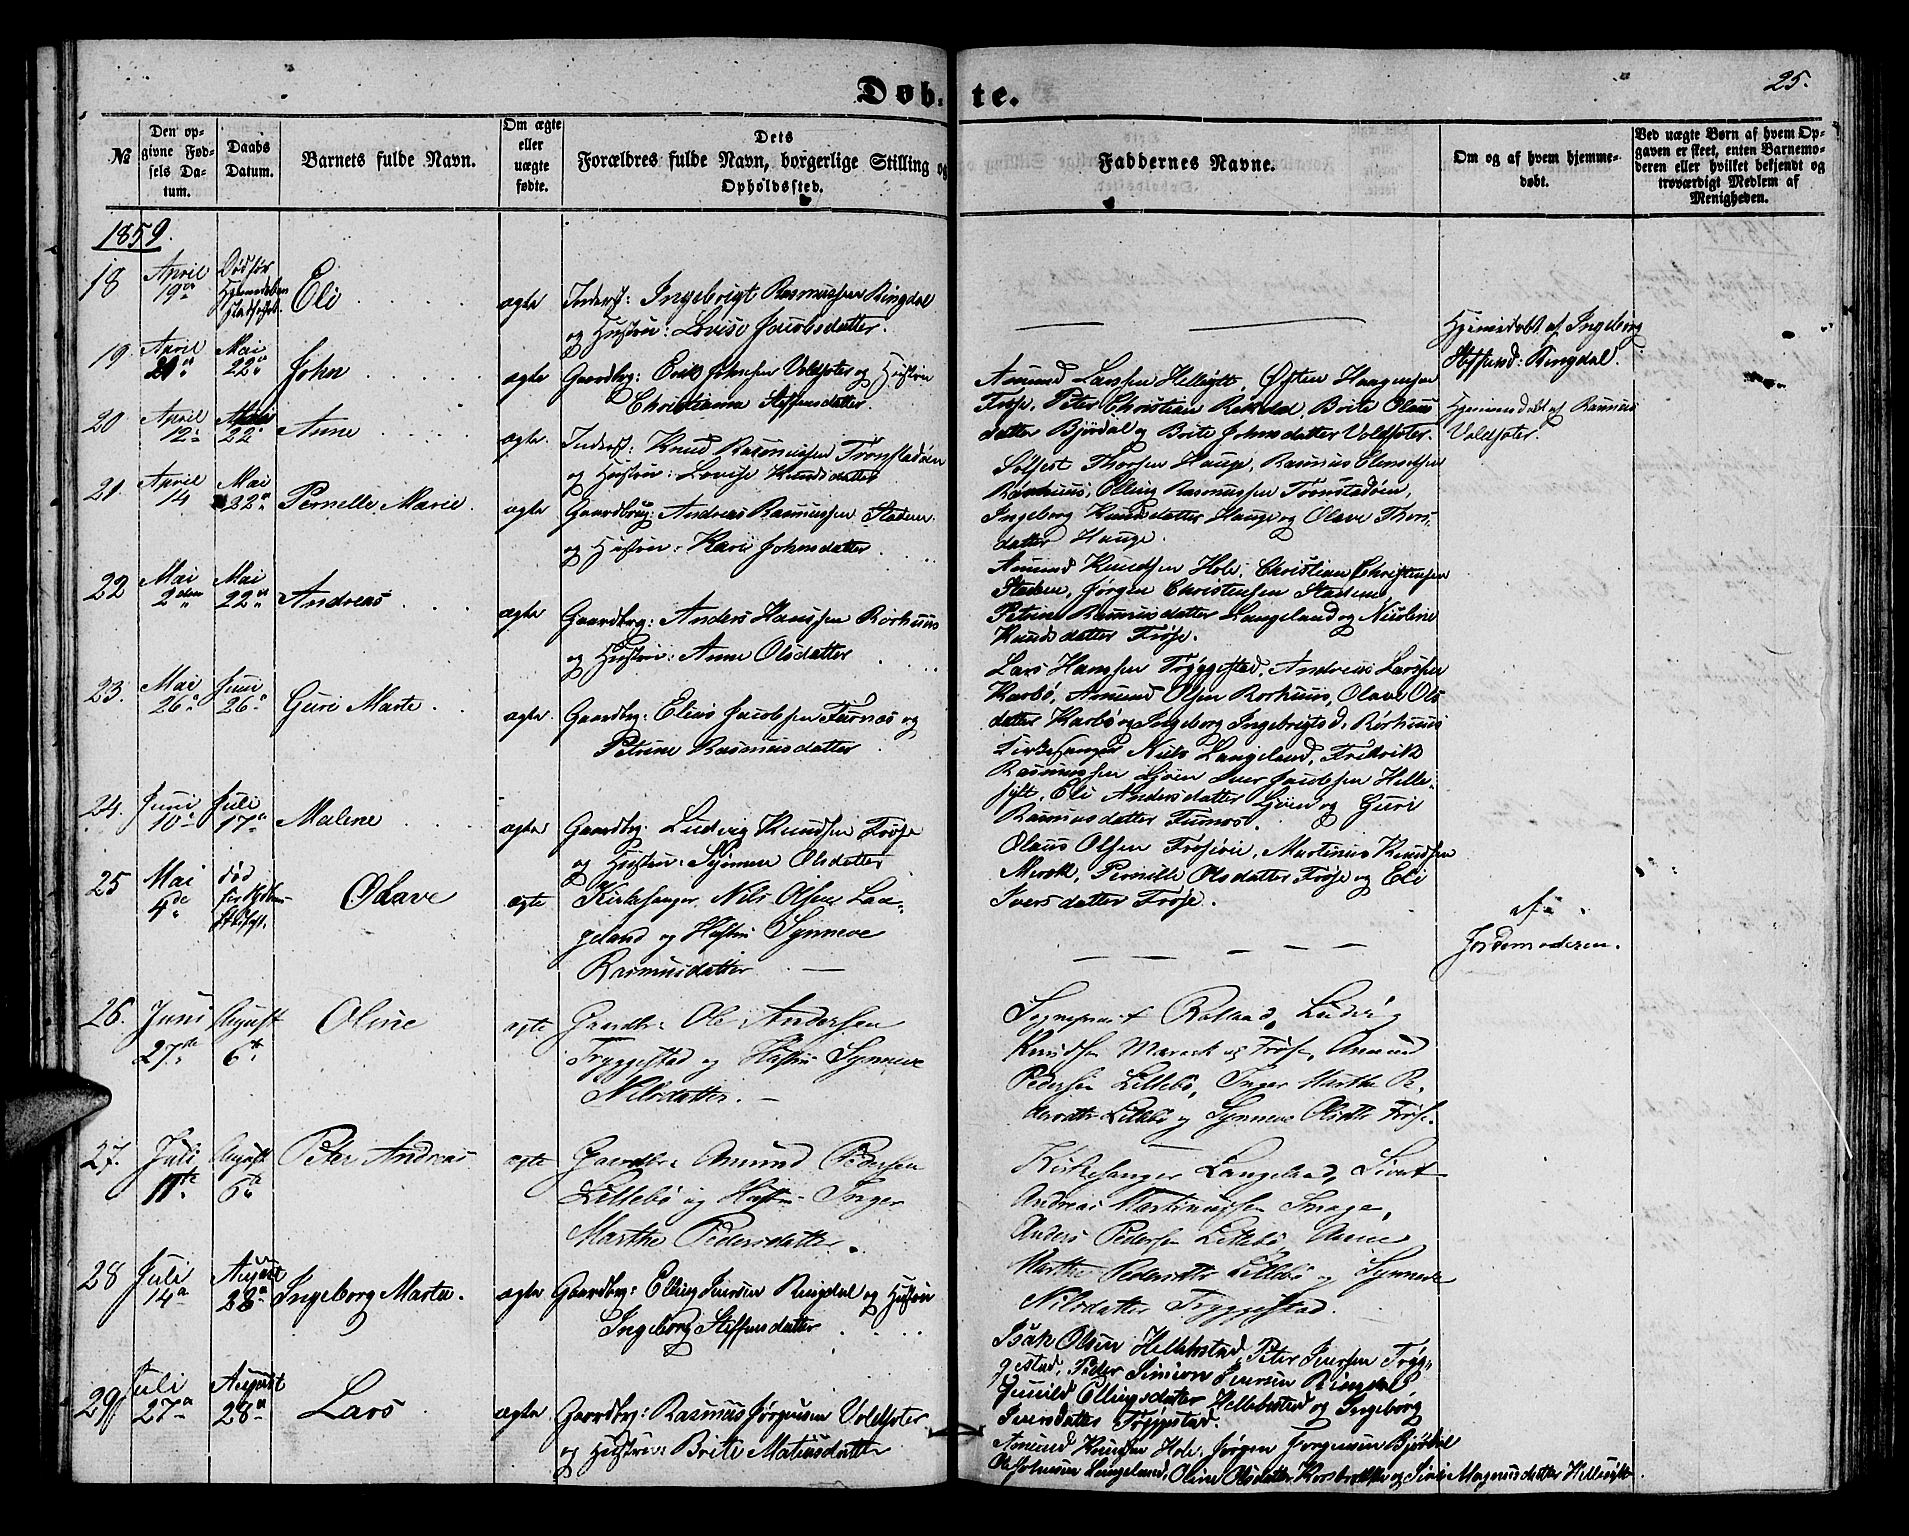 Døb- te.
25.
№
Den opgivne Fødsels Datum.
Daabs Datum.
Barnets fulde Navn.
Om ægte eller uægte fødte.
Dets Forældres fulde Navn, borgerlige Stilling og Opholdssted.
Faddernes Navne.
Om og af hvem hjemmedøbt.
Ved uægte Børn af hvem Opgaven er skeet, enten Barnemoderen eller hvilket bekjendt og troværdigt Medlem af Menigheden.
1859.
18 April 19 Eli ægte Inderst: Ingebrigt Rasmussen Ringdal
og Hustru: Lovise Jacobsdatter.
Hjemmedøbt af Ingeborg
Ringdal.
19. April Mai 22 John ægte Gaardbrg: Erik Johnsen Voldsæter og Hustru
Christianna Steffensdatter.
Amund Larssen Hellesylt, Østen Haagensen
Frøse, Peter Christian Rekkdal, Brite Olaus
datter Bjørdal og Brite Johnsdatter Voldsæter.
Hjemmedøbt af Rasmus
Voldsæter.
20 April 12 Mai 22 Anne ægte Inderst: Knud Rasmussen Tronstadøen
og Hustru: Lovise Knudsdatter
Sølfest Thorsen Hauge, Rasmus Clemetsen
Rørhuus, Elling Rasmussen Tronstadøen,
Ingeborg Knudsdatter Hauge og Olave Thors-
datter Hauge.
21. April 14 Mai 22 Pernelle Marie ægte Gaardbrug: Andreas Rasmussen Stadem
og Hustru: Kari Johnsdatter
Amund Knudsen Hole, Christian Christensen
Stadem, Jørgen Christensen Stadem,
Petrine Rasmusdatter Langeland og Nicoline
Knudsdatter Frøse.
22 Mai 2den Mai 22 Andreas ægte Gaardbrg: Anders Hanssen Rørhuus
og Hustru: Anne Olsdatter
Lars Hanssen Tryggestad, Andreas Larssen
Karbø, Amund Olsen Rørhuus, Olave Ols
datter Karbø og Ingeborg Ingebrigtsd. Rørhuus
23. Mai 26 Juni 26 Guri Marte ægte Gaardbg: Elias Jacobsen Furnæs og
Petrine Rasmusdatter
Kirkesanger Niels Langeland, Fredrik
Rasmussen Iver Jacobsen Helle-
sylt, Eli Andersdatter og Guri
Rasmusdatter Furnæs.
24. Juni 10 Juli 17 Malene ægte Gaardbg: Ludvig Knudsen Frøse
og Hustru: Olsdatter
Olaus Olsen Martinus Knudsen
Pernille Olsdatter Frøse og Eli
Iversdatter Frøse.
25 Mai 4de død Olave ægte Kirkesanger Nils Olsen Lan-
geland og Hustru Synneve
Rasmusdatter
af
Jordemoderen.
26. Juni 27de August 6te Oline ægte Gaardbr: Ole Andersen
Tryggestad og Hustru Synneve
Nilsdatter.
Ludvig
Knudsen og Frøse, Amund
Pedersen Lillebø, Inger Marthe Pe-
Lillebø og Synneve Frøse.
27. Juli 11te August 6te Peter Andreas ægte Gaardbr: Amund Pedersen
Lillebø og Hustru Inger
Marthe Pedersdatter.
Kirkesanger Langeland,
Andreas Martinussen
Anders Pedersen Lillebø, Anne
Marthe Lillebø og Synneve
Nilsdatter Tryggestad.
28 Juli 14 August 28 Ingeborg Marta. ægte Gaardbg: Elling Iversen Ringdal og Hustru
Ingeborg Steffensdatter
Isak Olsen Hellebostad, Peter Iversen Tryg-
gestad, Peder Simion Iversen Ringdal
Gunild Ellingsdatter Hellebostad og Ingeborg
Iversdatter Tryggestad.
29 Juli 27 August 28 Lars ægte Gaardbg: Rasmus Jørgensen Voldsæter
og Hustru: Brite Matiasdatter
Amund Knudsen Hole, Jørgen Jørgensen Bjørdal
Ole Johnsen Langeland, Oline Olsdatter Korsbrekke og Siri Magnusdatter Hellesylt.